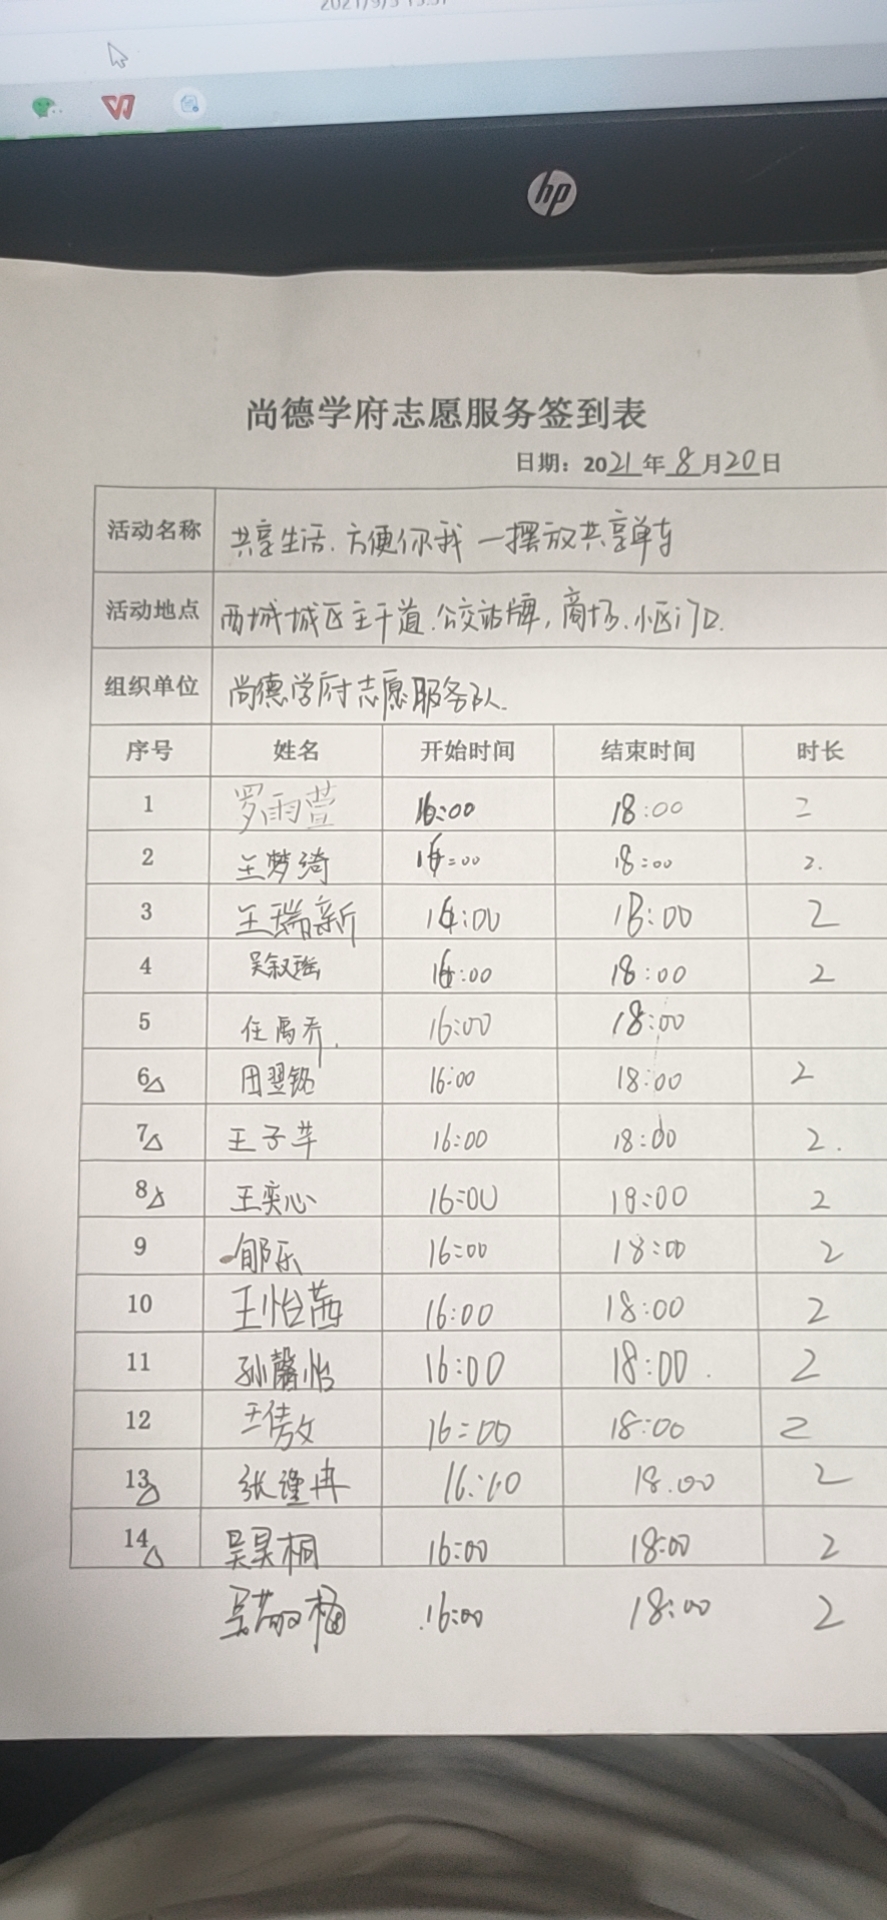 hp
尚德学府志愿服务签到表
日期：2021年8月20日
活动名称 共享生活.方便你我一摆放共享单车
活动地点 西城城区主干道.公交站牌，商场.小区门口.
组织单位 尚德学府志愿服务队.
序号 姓名 开始时间 结束时间 时长
1 罗雨萱 16:00 18:00 2
2 王梦绮 16:00 18:00 2.
3 王瑞新 16:00 18:00 2
4 吴叙瑶 16:00 18:00 2
5 任禹乔. 16:00 18:00
6△ 田翌铭 16:00 18:00 2
7△ 王子芊 16:00 18:00 2.
8△ 王奕心 16:00 18:00 2
9 郇乐 16:00 18:00 2
10 王怡茜 16:00 18:00 2
11 孙馨怡 16:00 18:00. 2
12 16:00 18:00 2
13△ 张谨冉 16:00 18.00 2
14△ 吴昊桐 16:00 18:00 2
16:00 18:00 2